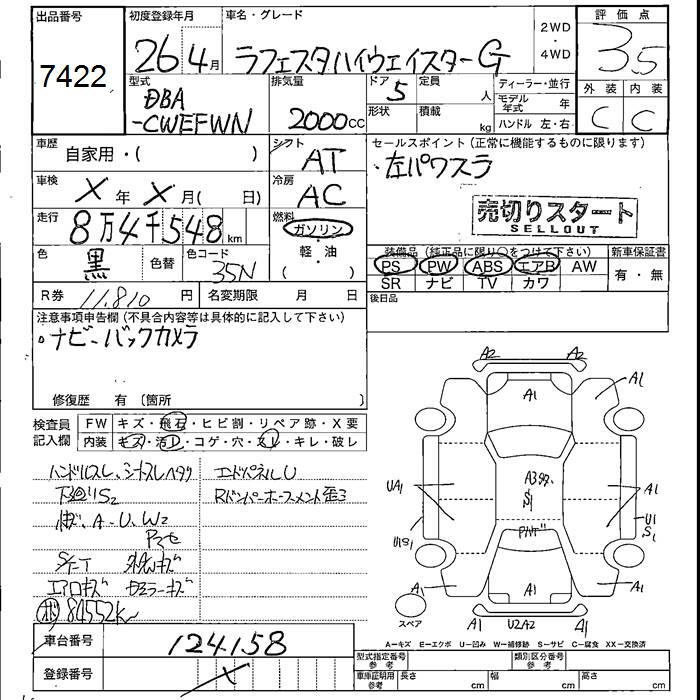 出品番号
7422
初度登録年月
26 4月
車名・グレード
ラフェスタハイウェイスターG
2WD
・
4WD
評価点
3.5
型式
DBA
-CWEFWN
排気量
2000cc
ドア 5
定員 人
形状
積載 kg
ディーラー・並行
モデル年式 年
ハンドル 左・右
外装 内装
C C
車歴
自家用・( )
シフト
AT
セールスポイント（正常に機能するものに限ります）
・左パワスラ
車検
X年 X月( 日)
冷房
AC
売切りスタート
SELLOUT
走行
8万4千548km
燃料
ガソリン
・
軽・油
( )
装備品（純正品に限り○をつけて下さい）
新車保証書
PS PW ABS エアB AW
有・無
SR ナビ TV カワ
色
黒
色替
色コード
35N
後日品
R券 11,810円
名変期限 月 日
注意事項申告欄（不具合内容等は具体的に記入して下さい）
・ナビ-バックカメラ
修復歴 有（箇所 ）
検査員
記入欄
FW キズ・飛石・ヒビ割・リペア跡・X要
内装 キズ・汚レ・コゲ・穴・スレ・キレ・破レ
ハンドルスレ、シートスレヘタリ
下廻りS2
A・U、W2
エアロキズ
84552k
エンドパネルU
A2 A2
A1 A1
A1
UA1
A1
U1S1
U1
S1
A1 A1 A1
A1 U2A2 A1
スペア
A－キズ E－エクボ U－凹み W－補修跡 S－サビ C－腐食 XX－交換済
車台番号
124158
登録番号
X
型式指定番号
参考
類別区分番号
参考
車庫証明用
参考
長さ cm
幅 cm
高さ cm